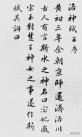 洛神賦并序
黃初三年余朝京師還濟洛川
古人有言斯水之神名曰宓妃感
宋玉對楚王神女之事遂作斯
賦其詞曰